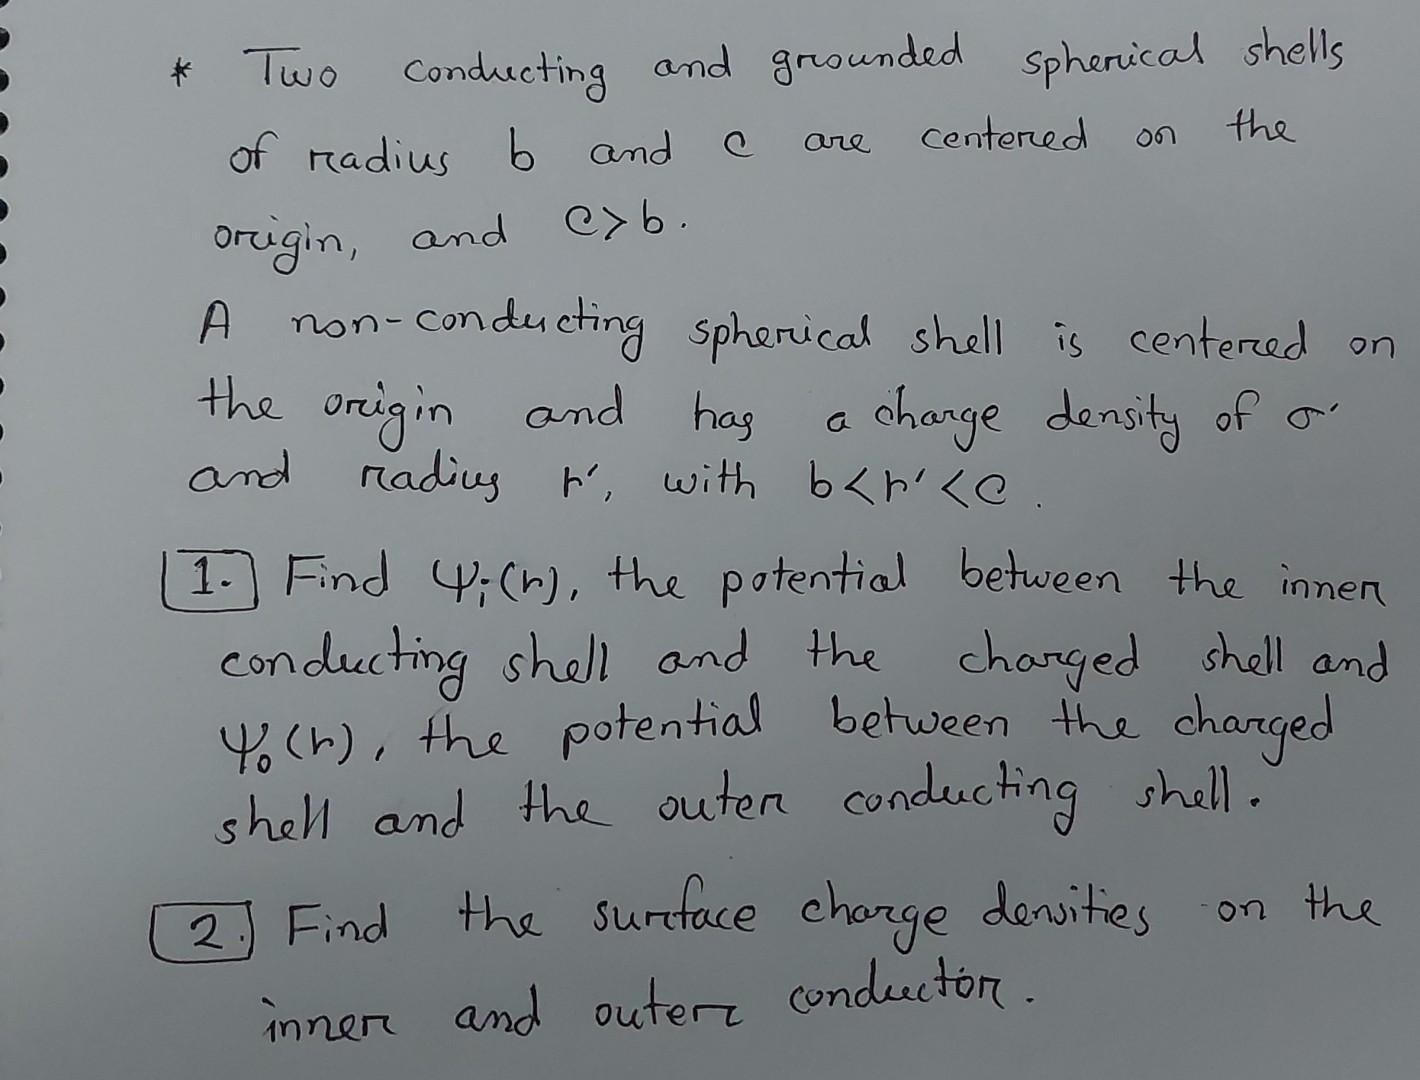 * Two conducting and grounded spherical shells
of radius b and c are centered on the
origin, and c>b.
A non-conducting spherical shell is centered on
the origin and has a charge density of σ'
and radius r', with b<r'<c.
1. Find Ψᵢ(r), the potential between the inner
conducting shell and the charged shell and
Ψ₀(r), the potential between the charged
shell and the outer conducting shell.
2. Find the surface charge densities on the
inner and outer conductor.